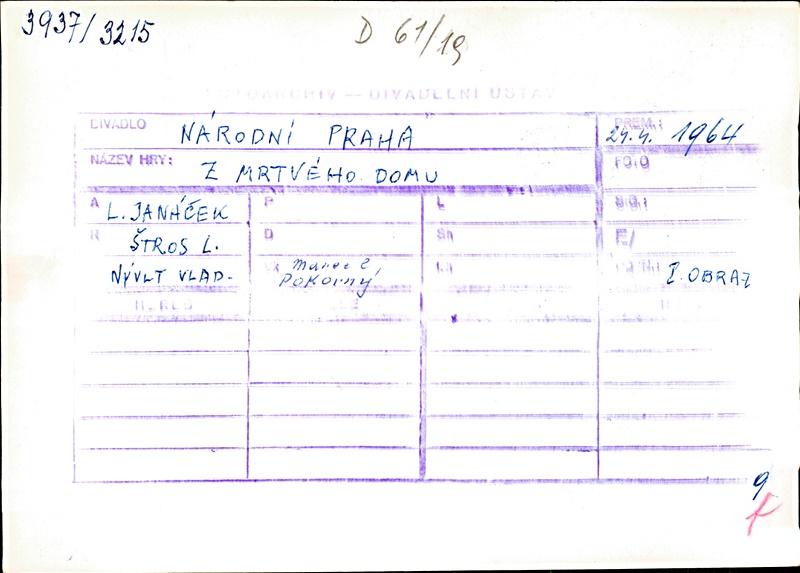 3937/3215
D 61/19
FOTOARCHIV — DIVADELNÍ ÚSTAV
DIVADLO NÁRODNÍ PRAHA
PREM.: 24.4. 1964
NÁZEV HRY: Z MRTVÉHO DOMU
FOTO
A L. JANÁČEK P L
R ŠTROS L. D Sh E/
NÝVLT VLAD. Pokorný, I. OBRAZ
9